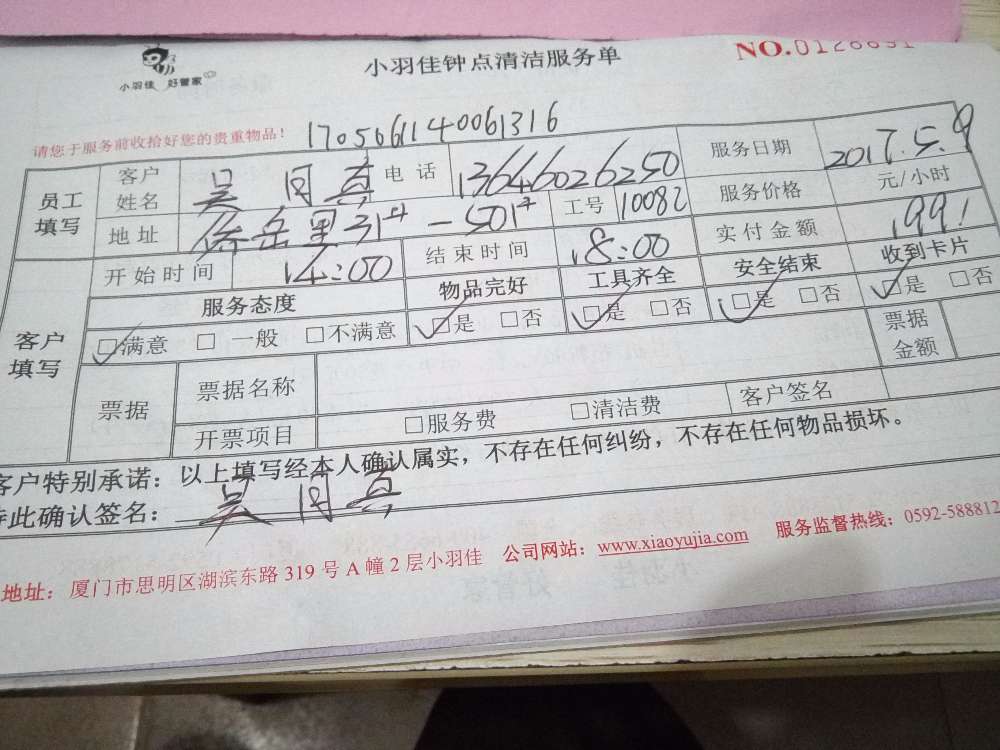 小羽佳 好管家
小羽佳钟点清洁服务单
NO.0128891
请您于服务前收拾好您的贵重物品！ 1705061140061316
员工填写 客户姓名 吴 同真 电话 13646026250 服务日期 2017.5.9
地址 岳里31 - 501 工号 10082 服务价格 元/小时
开始时间 14:00 结束时间 18:00 实付金额 199!
客户填写 服务态度 物品完好 工具齐全 安全结束 收到卡片
□满意 □一般 □不满意 □是 □否 □是 □否 □是 □否 □是 □否
票据 票据名称 票据金额
开票项目 □服务费 □清洁费 客户签名
客户特别承诺：以上填写经本人确认属实，不存在任何纠纷，不存在任何物品损坏。
特此确认签名： 吴 同真
地址：厦门市思明区湖滨东路319号A幢2层小羽佳 公司网站：www.xiaoyujia.com 服务监督热线：0592-588812